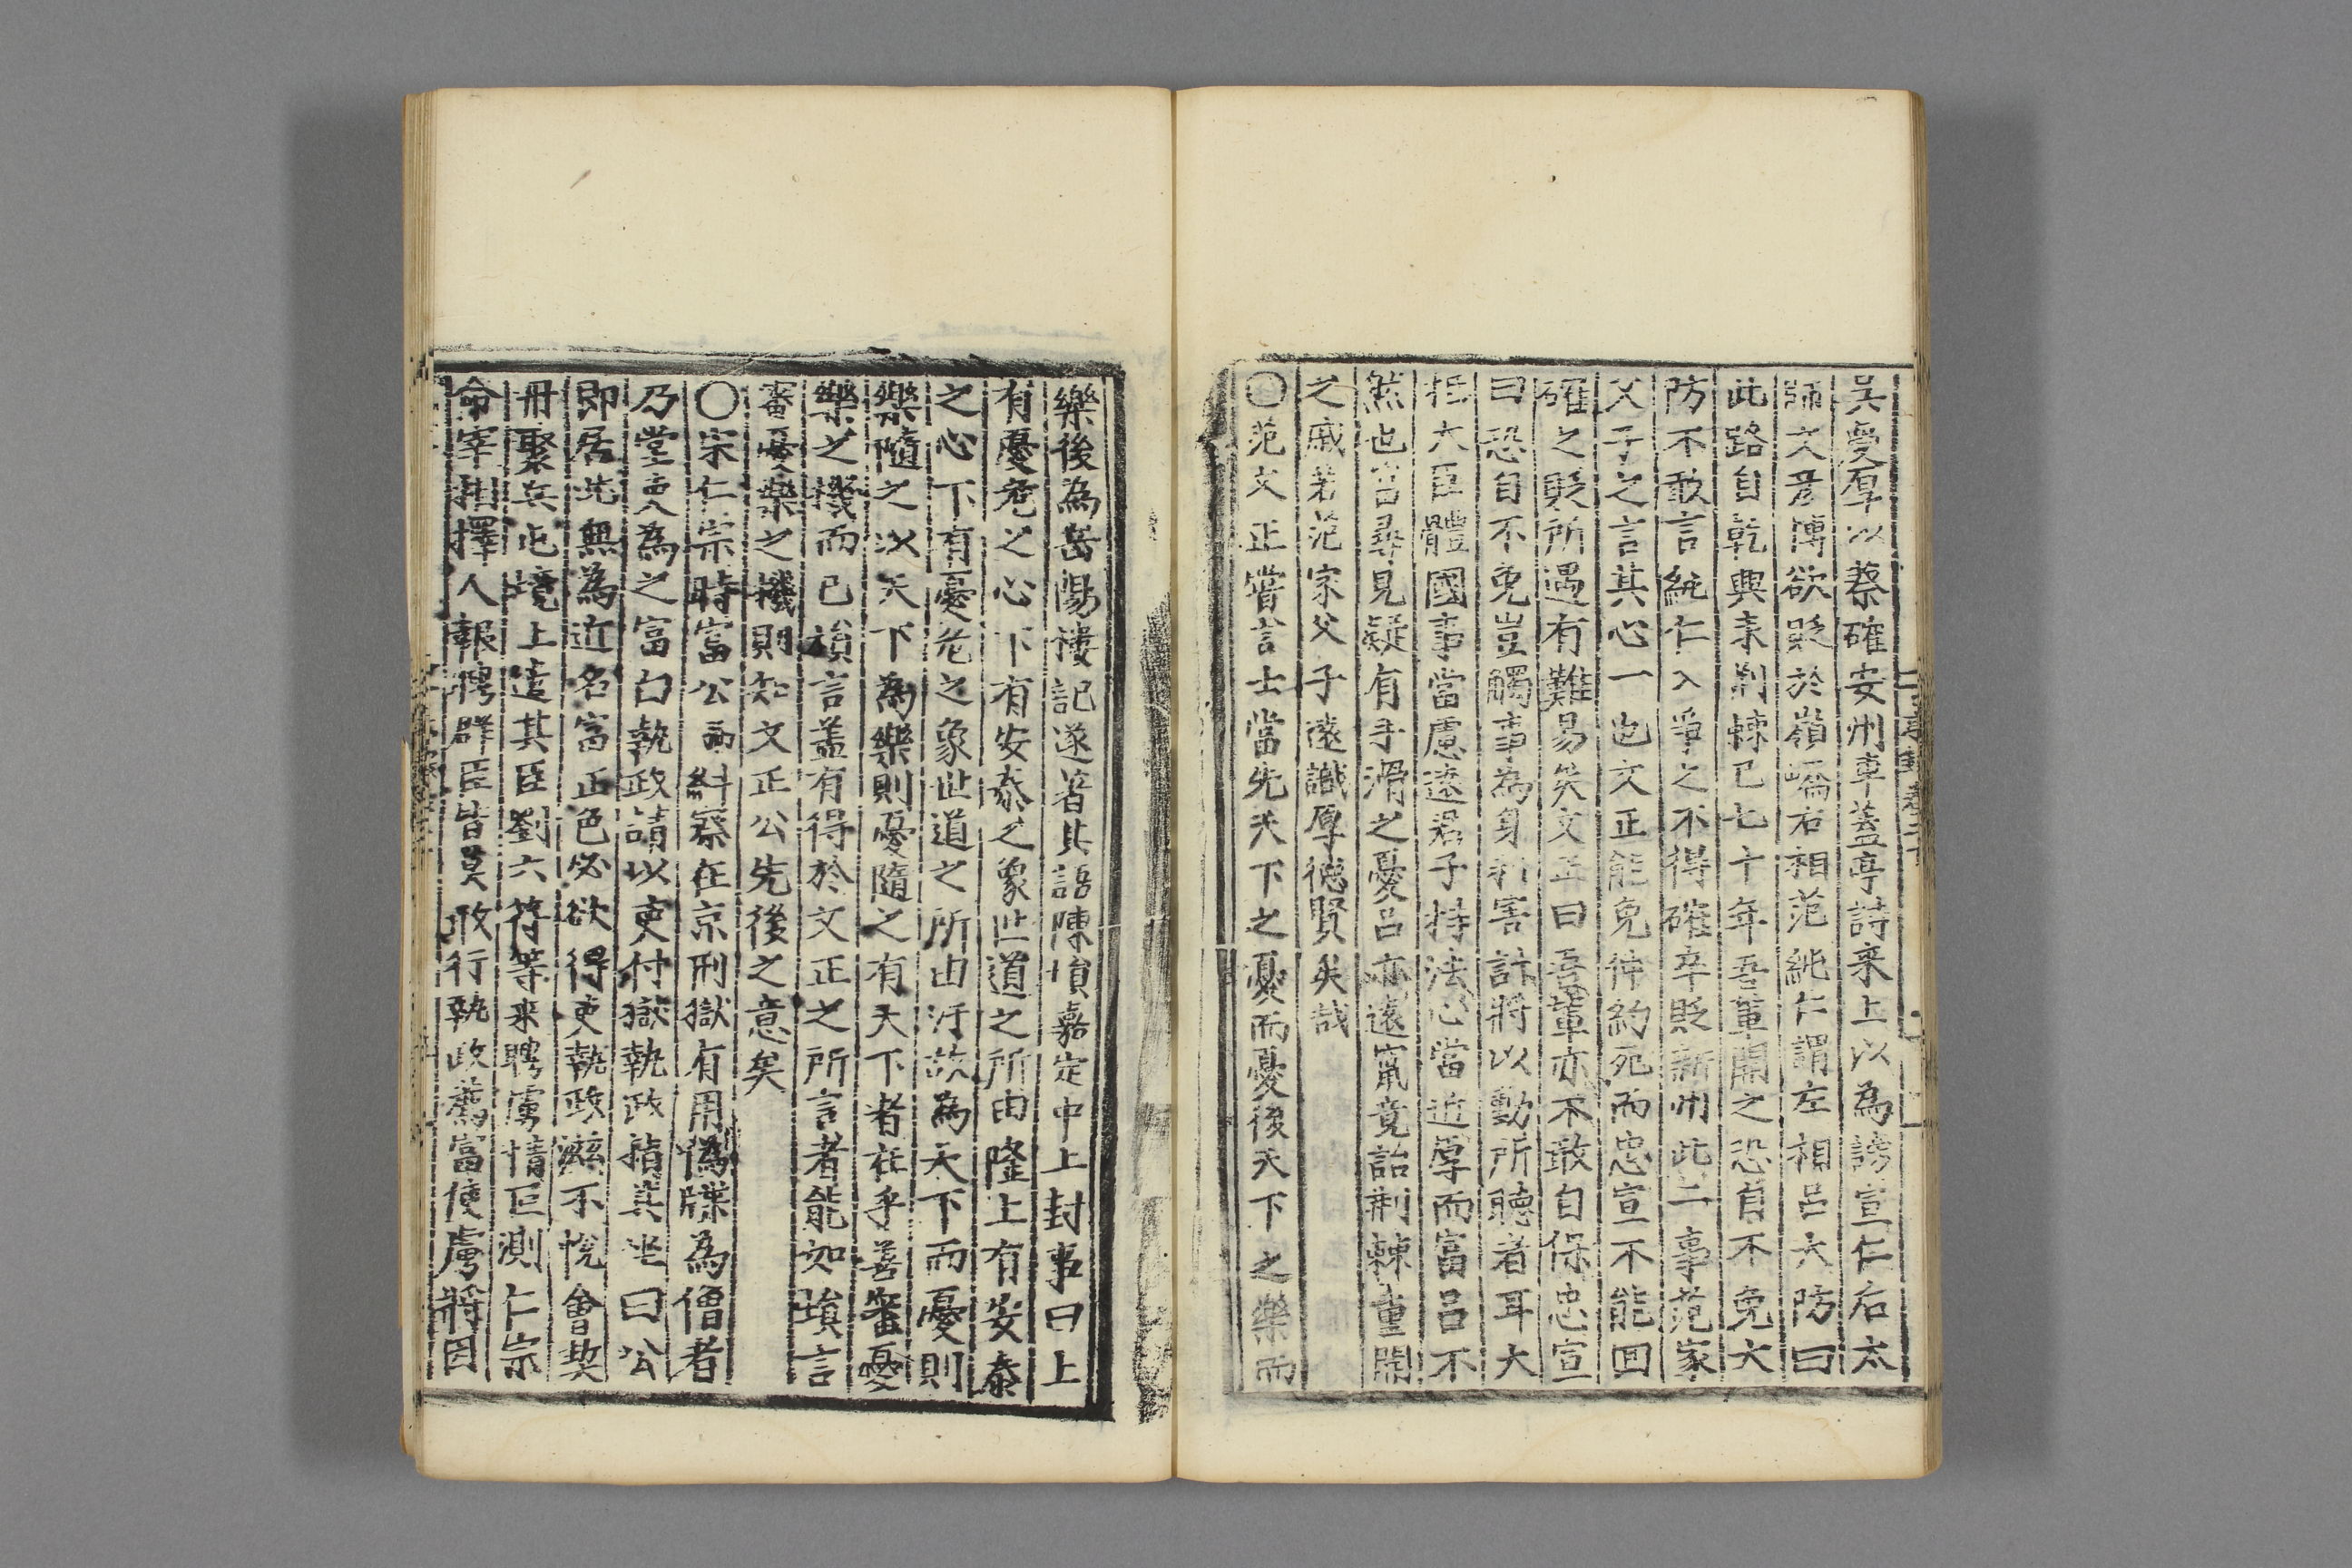 吴處厚以蔡確安州車蓋亭詩来上以為謗宣仁后太
師文彦博欲貶於嶺嶠右相范純仁謂左相吕大防曰
此路自乾興来荆棘已七十年吾輩開之恐自不免大
防不敢言純仁入爭之不得確卒貶新州此二事范家
父子之言其心一也文正能免仲約死而忠宣不能回
確之貶所遇有難易矣文正曰吾輩亦不敢自保忠宣
曰恐自不免豈觸事為身利害計將以動所聽者耳大
抵大臣體國事當慮遠君子持法心當近厚而富吕不
然也富尋見疑有手滑之憂吕亦遠竄竟詒荆棘重開
之戚若范家父子遠識厚德賢矣哉
〇范文正嘗言士當先天下之憂而憂後天下之樂而
樂後為岳陽樓記遂著其語陳塤嘉定中上封事曰上
有憂危之心下有安泰之象世道之所由隆上有安泰
之心下有憂危之象世道之所由汙故為天下而憂則
樂隨之以天下為樂則憂隨之有天下者在乎善審憂
樂之機而已塤言盖有得於文正之所言者能知塤言
審憂樂之機則知文正公先後之意矣
〇宋仁宗時富公弼糾察在京刑獄有用偽牒為僧者
乃堂吏為之富白執政請以吏付獄執政指其坐曰公
即居此無為近名富正色必欲得吏執政滋不悅會契
丹聚兵屯境上遣其臣劉六符等来聘虜情叵測仁宗
命宰相擇人報聘群臣皆莫敢行執政薦富使虜將因